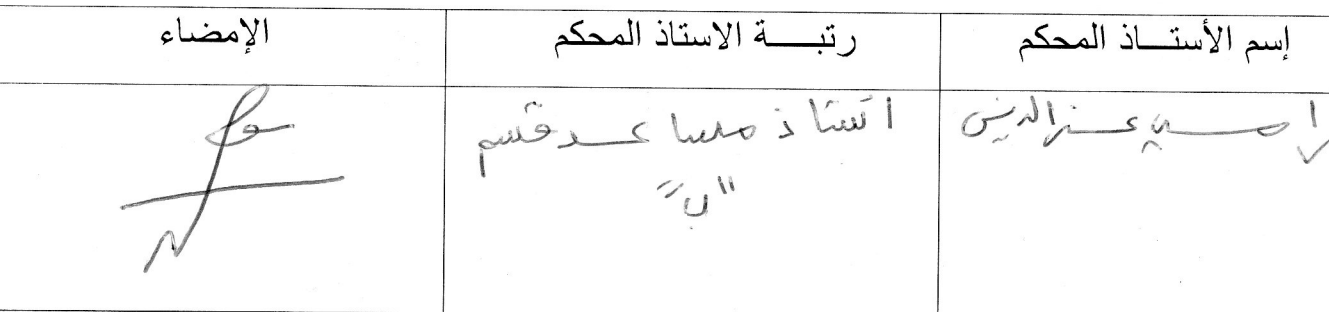 إسم الأستـــاذ المحكم
رتبـــــة الاستاذ المحكم
الإمضاء
عـزالدين
استاذ مساعد قسم
"ب"